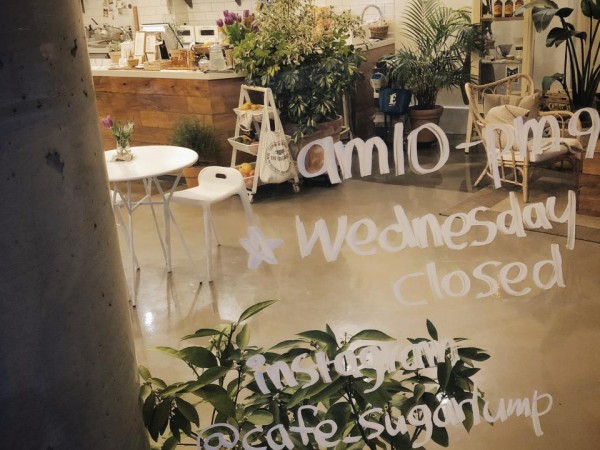 am10-pm9
☆Wednesday
closed
instagram
@cafe_sugarlump